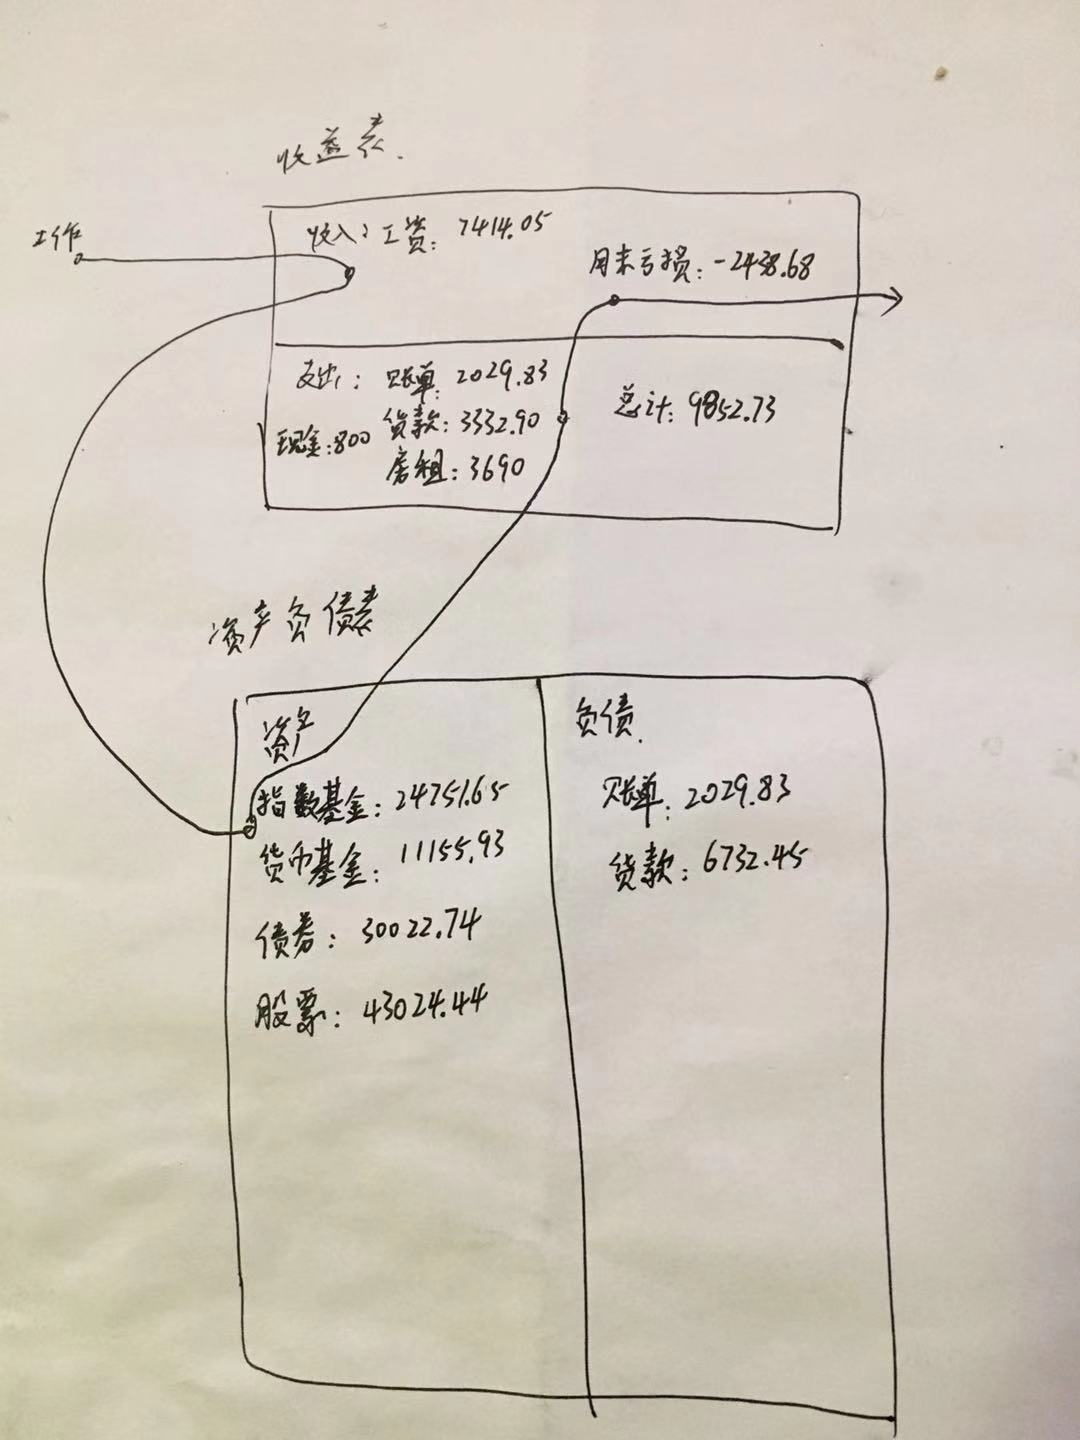 收益表.
工作
收入: 工资: 7414.05
月末亏损: -2438.68
支出: 账单: 2029.83
现金:800 贷款: 3332.90
房租: 3690
总计: 9852.73
资产负债表
资产
指数基金: 24751.65
货币基金: 11155.93
债券: 30022.74
股票: 43024.44
负债.
账单: 2029.83
贷款: 6732.45